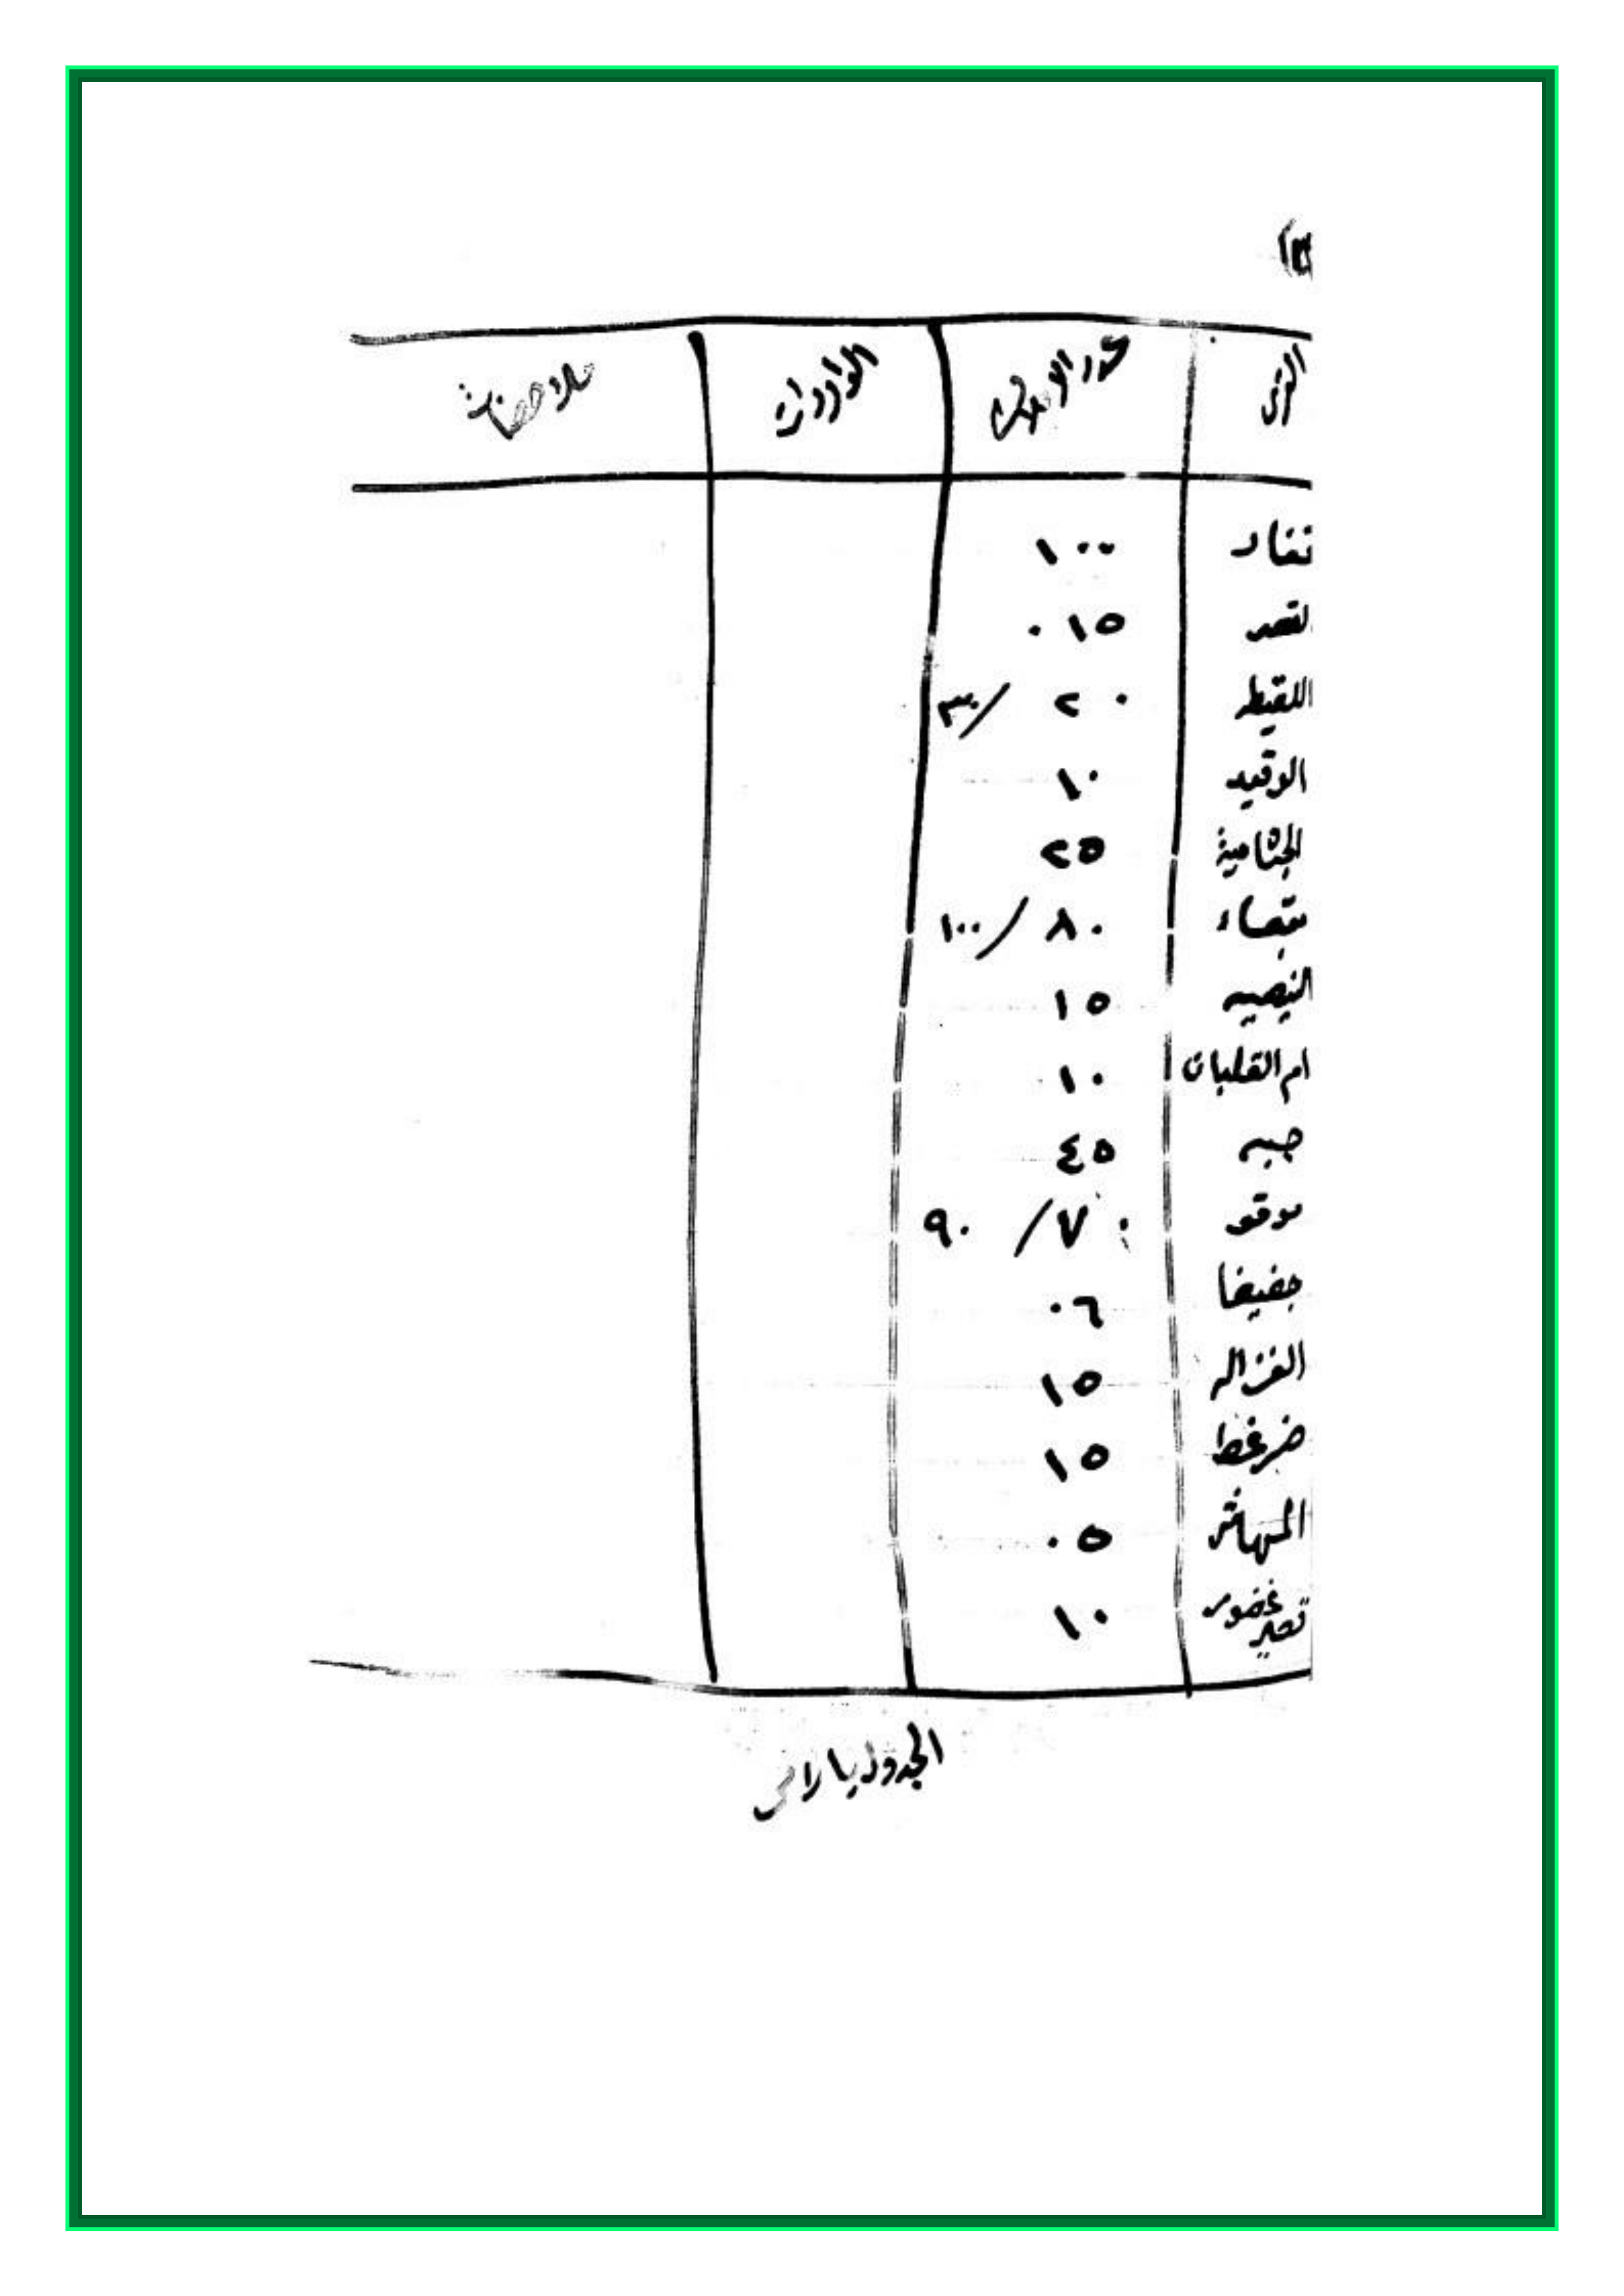 القرى عدد الابيات الواردات ملاحظات
قفار ١٠٠
لقصر ٠١٥
اللقيطه ٢٠ / ٣٠
الوقيد ١٠
الجثامية ٢٥
بقعاء ٨٠ / ١٠٠
النيصيه ١٥
ام القلبان ١٠
جبه ٤٥
موقق ٧٠ / ٩٠
جفيفا ٠٦
الغزاله ١٥
ضرغط ١٥
المهاش ٠٥
غضور ١٠
الجدول